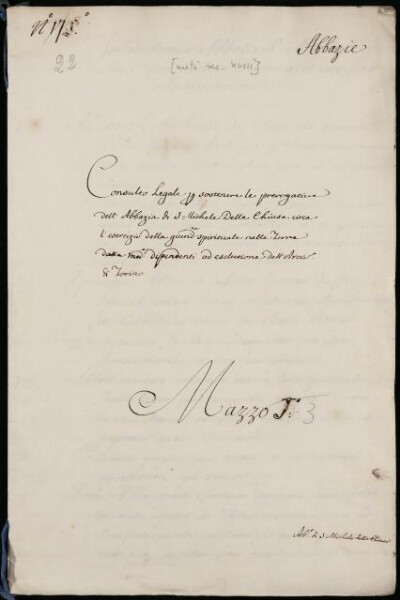 Abbazie
22
[metà sec. XVIII]
Consulto Legale per sostenere le prerogative
dell'Abbazia di S Michele Della Chiusa circa
l'esercizio della giurisd.ne spirituale nelle Terre
dalla med.ma dipendenti ad esclusione dell'Arciv.
di Torino
Mazzo 3
Abb.a di S Michele della Chiusa